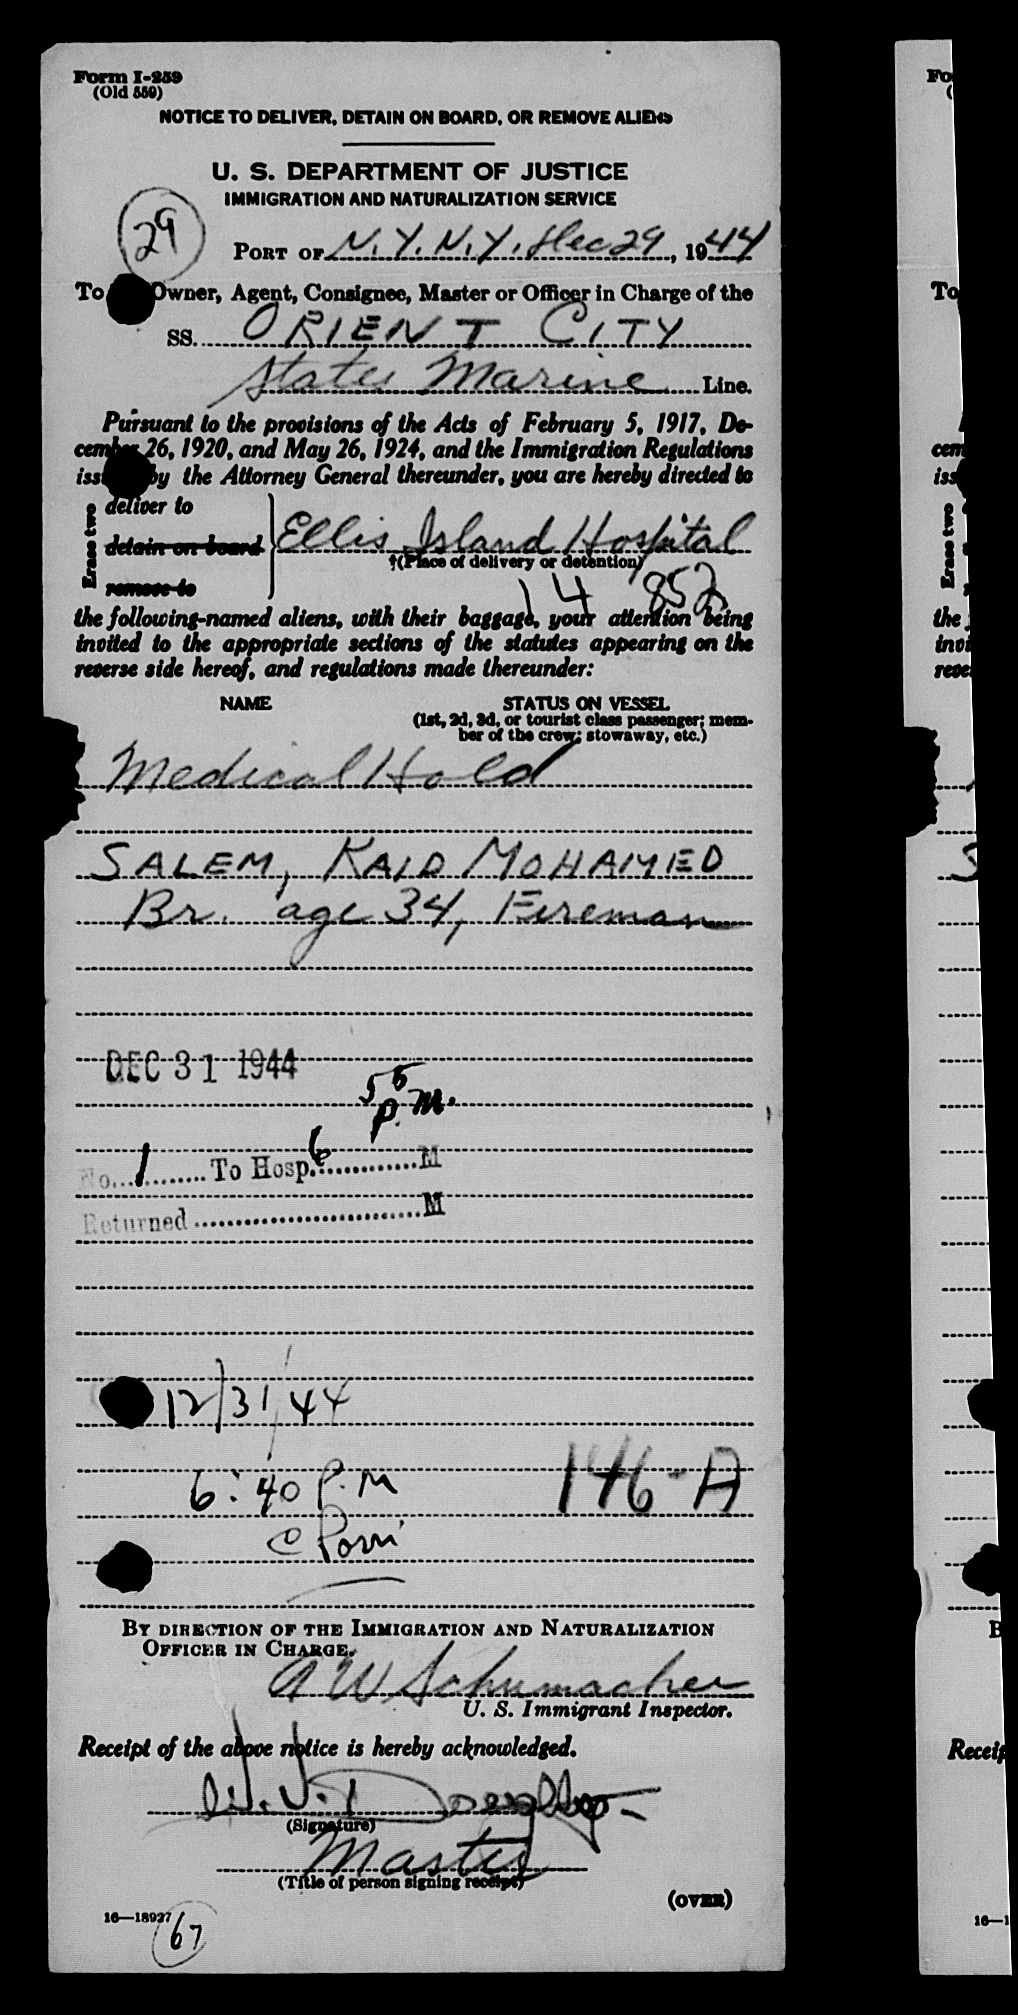 Form I-259
(Old 559)
NOTICE TO DELIVER, DETAIN ON BOARD, OR REMOVE ALIENS
U. S. DEPARTMENT OF JUSTICE
IMMIGRATION AND NATURALIZATION SERVICE
29
PORT OF N.Y.N.Y. Dec 29, 1944
To Owner, Agent, Consignee, Master or Officer in Charge of the
SS. ORIENT CITY
States Marine Line.
Pursuant to the provisions of the Acts of February 5, 1917, De-
cember 26, 1920, and May 26, 1924, and the Immigration Regulations
iss by the Attorney General thereunder, you are hereby directed to
Erase two
deliver to
detain on board
remove to
Ellis Island Hospital
†(Place of delivery or detention)
14 852
the following-named aliens, with their baggage, your attention being
invited to the appropriate sections of the statutes appearing on the
reverse side hereof, and regulations made thereunder:
NAME STATUS ON VESSEL
(1st, 2d, 3d, or tourist class passenger; mem-
ber of the crew; stowaway, etc.)
Medical Hold
SALEM, KAID MOHAMED
Br. age 34, Fireman
DEC 31 1944
5 5 P.M.
No. 1 To Hosp. 6 M
Returned M
12/31/44
6:40 P.M
146-A
BY DIRECTION OF THE IMMIGRATION AND NATURALIZATION
OFFICER IN CHARGE.
A W Schumacher
U. S. Immigrant Inspector.
Receipt of the above notice is hereby acknowledged.
(Signature)
Master
(Title of person signing receipt)
(OVER)
16—18927
67
Fo
(
To
cem
iss
Erase two
the
invi
reve
S
B
Receip
16—1